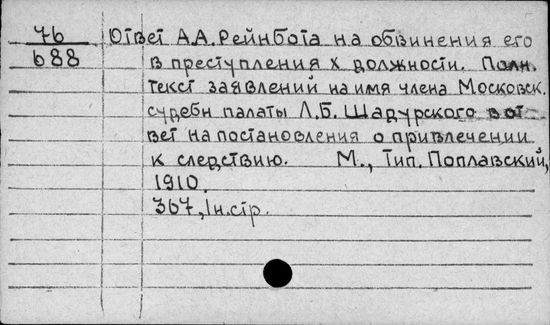 76 Ответ А.А. Рейнбота на обвинения его
688 в преступления х должности. Полн.
текст заявлений на имя члена Московск.
судебн палаты Л.Б. Шадурского в от
вет на постановления о привлечении
к следствию. М., Тип. Поплавский,
1910.
367, 1н.стр.